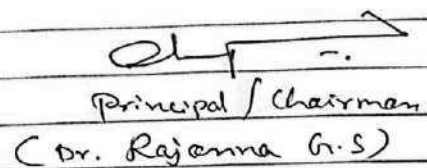 Principal / Chairman
(Dr. Rajanna G.S)